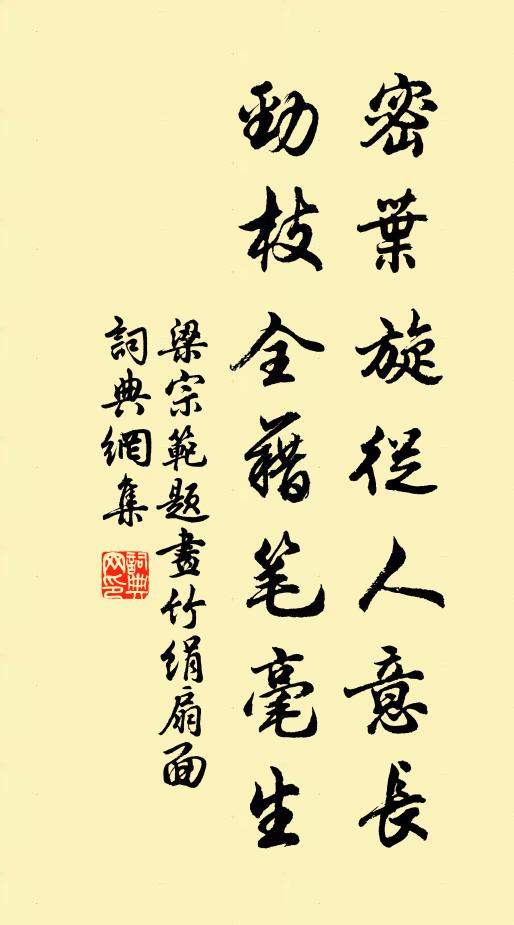 密葉旋從人意長
勁枝全藉笔毫生
梁宗範题畫竹绢扇面
詞典網集
詞典
网印